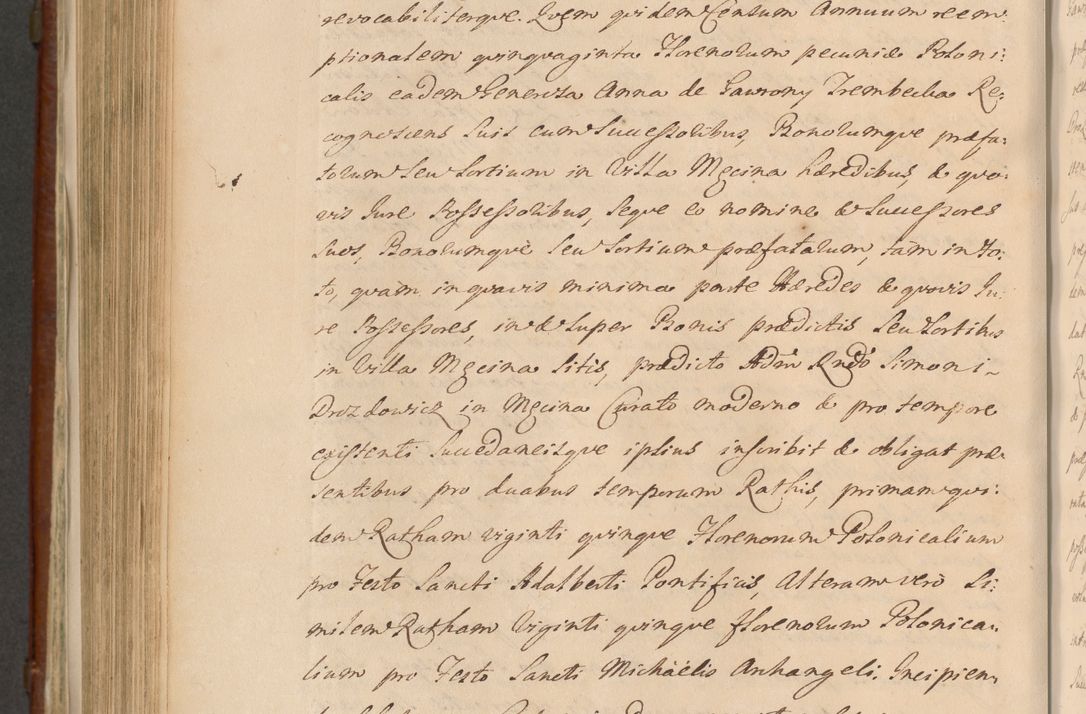 revocabiliterque. Quem quidem Censum Annuum reem:
ptionalem quinquaginta Florenorum pecuniæ Poloni:
calis eadem Generosa Anna de Gawrony Trembecka Re:
cognoscens suis cum Successoribus, Bonorumque præfa:
torum seu Sortium in Villa Męcina hæredibus, & quo:
vis Jure Possessoribus, seque eo nomine & Successores
suos, Bonorumque seu Sortium præfatarum, tam in to:
to, quam in quavis minima parte Hæredes & quovis Ju:
re Possessores, in & super Bonis prædictis seu Sortibus
in Villa Męcina sitis, prædicto Adm Rndo Simoni
Drozdowicz in Męcina Curato moderno & pro tempore
existenti Succedaneisque ipsius inscribit & obligat præ:
sentibus pro duabus temporum Rathis, primam qui:
dem Ratham viginti quinque Florenorum Polonicalium
pro Festo Sancti Adalberti Pontificis, Alteram verò Si:
milem Ratham Viginti quinque florenorum Polonica:
lium pro Festo Sancti Michäelis Archangeli. Incipien: